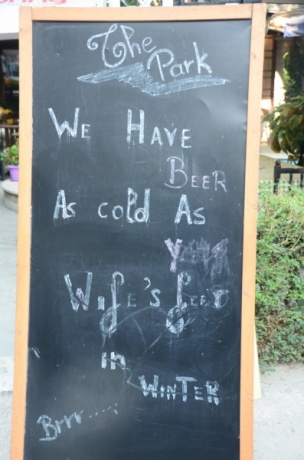 The Park
We Have
Beer
As cold As
Your
Wife's feet
in
Winter
Brrr.....